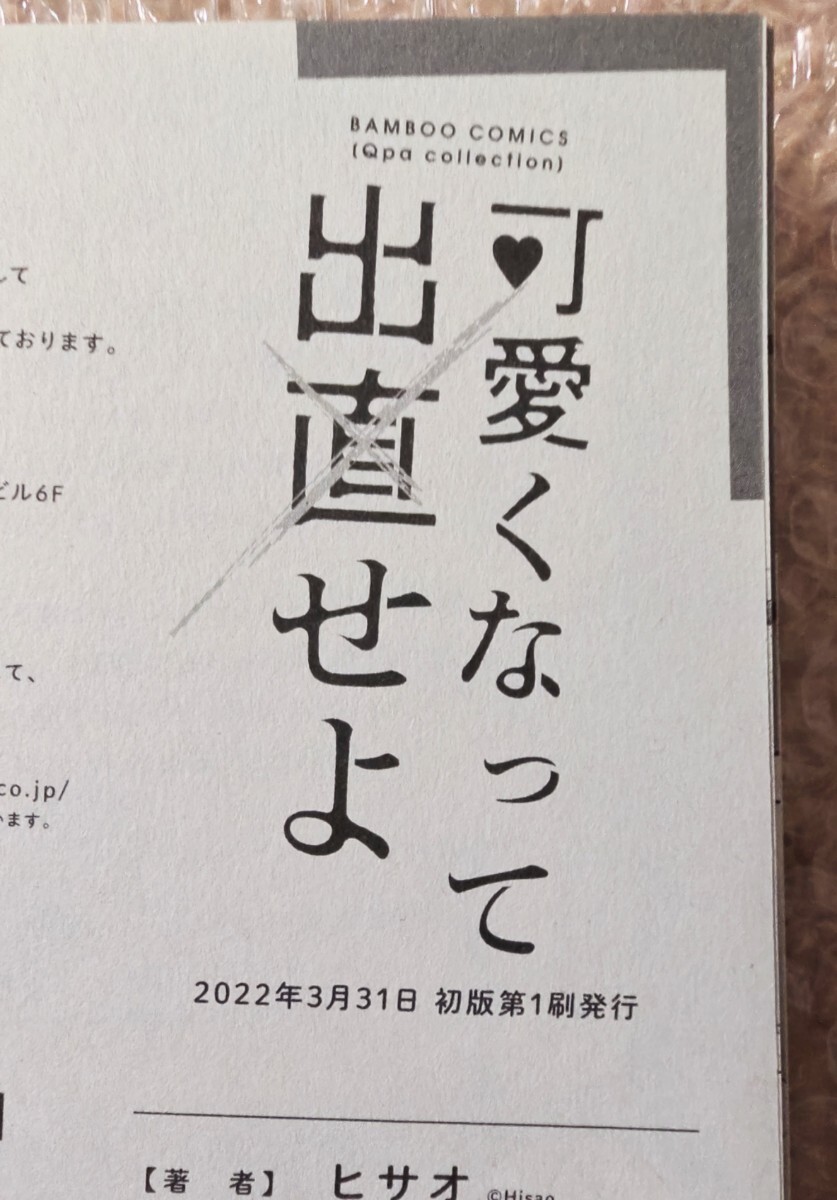 BAMBOO COMICS
(Qpa collection)
可愛くなって
出直せよ
2022年3月31日 初版第1刷発行
【著 者】 ヒサオ ©Hisao
して
ております。
ビル6F
て、
co.jp/
います。